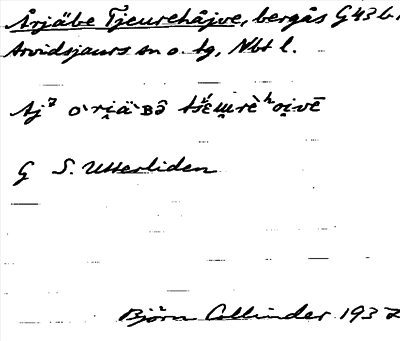 Årjäbe Tjeurehåjve, bergås G43 b,
Arvidsjaurs sn o. tg, Nbt l.
Aj² o`ri̯ä`ʙə̂ tšéɯrè ʰoi̯vē
G S. Utterliden
Björn Collinder 1937